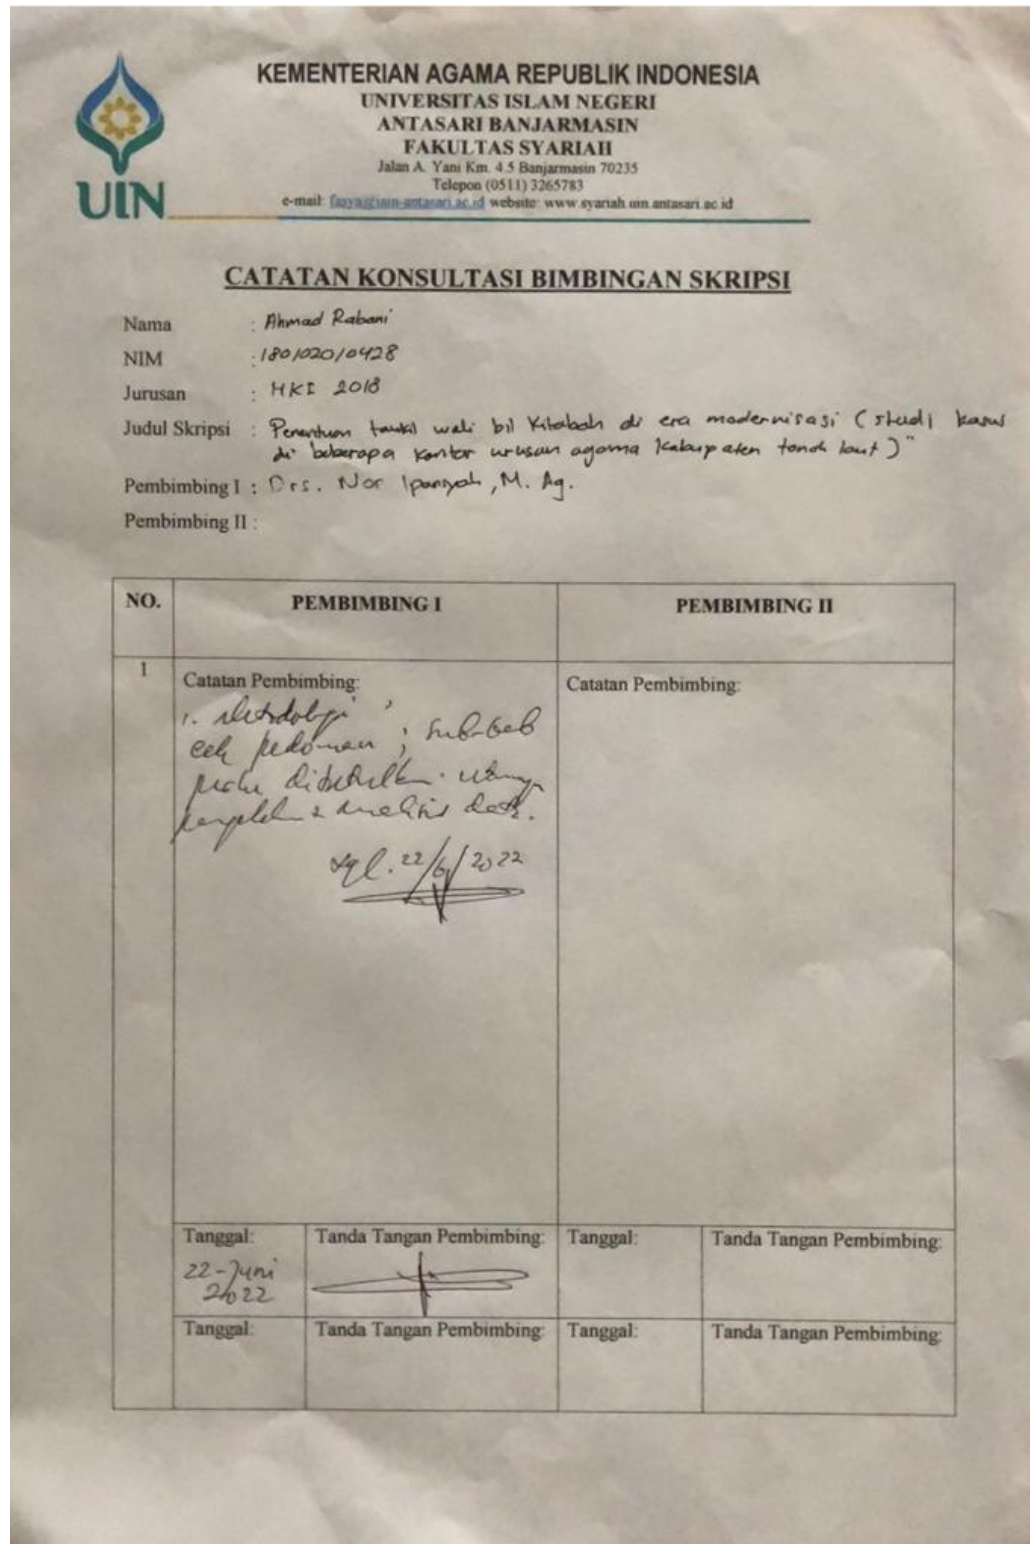 UIN
KEMENTERIAN AGAMA REPUBLIK INDONESIA
UNIVERSITAS ISLAM NEGERI
ANTASARI BANJARMASIN
FAKULTAS SYARIAH
Jalan A. Yani Km. 4.5 Banjarmasin 70235
Telepon (0511) 3265783
e-mail: fasya@iain-antasari.ac.id website: www.syariah.uin.antasari.ac.id
CATATAN KONSULTASI BIMBINGAN SKRIPSI
Nama : Ahmad Rabani
NIM : 180102010428
Jurusan : HKI 2018
Judul Skripsi : Penentuan taukil wali bil Kitabah di era modernisasi (studi kasus
di beberapa Kantor urusan agama Kabupaten tanah laut)"
Pembimbing I : Drs. Nor Ipansyah, M. Ag.
Pembimbing II :
NO. PEMBIMBING I PEMBIMBING II
1 Catatan Pembimbing: Catatan Pembimbing:
1. Metodologi
cek pedoman ; sub-bab
perlu
& analisis data.
tgl. 22/6/2022
Tanggal: Tanda Tangan Pembimbing: Tanggal: Tanda Tangan Pembimbing:
22-Juni
2022
Tanggal: Tanda Tangan Pembimbing: Tanggal: Tanda Tangan Pembimbing: